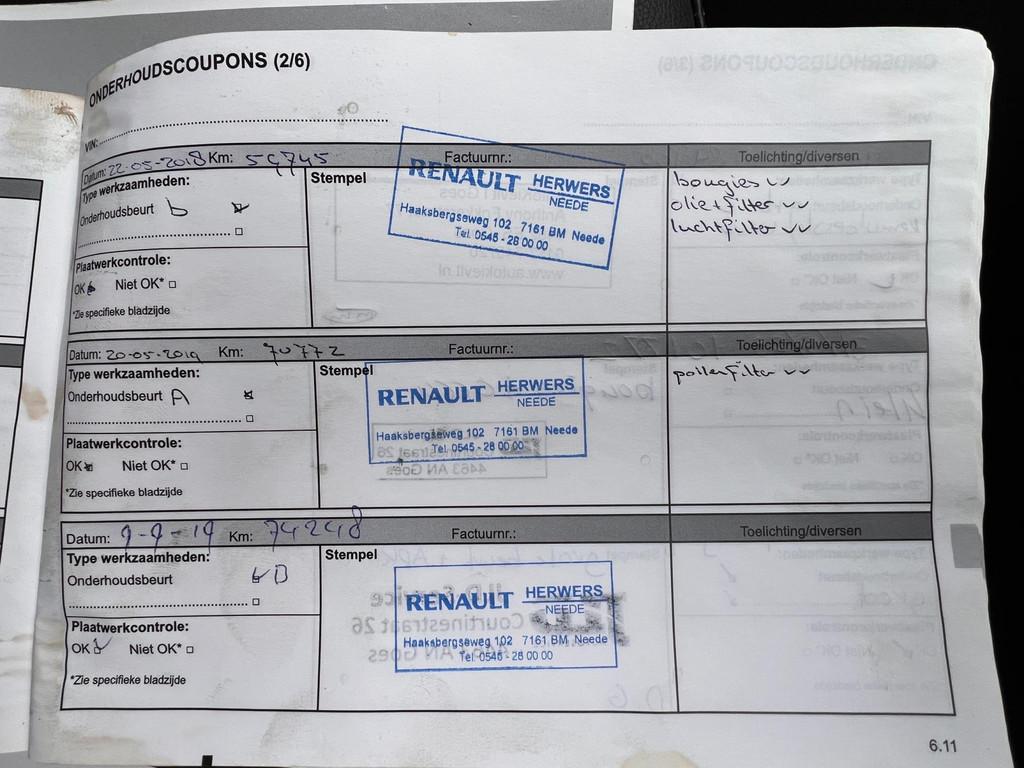 ONDERHOUDSCOUPONS (2/6)
VIN:
Datum: 22-05-2018 Km: 59745 Factuurnr.: Toelichting/diversen
Type werkzaamheden:
Onderhoudsbeurt b
Stempel
RENAULT HERWERS
NEEDE
Haaksbergseweg 102 7161 BM Neede
Tel. 0545 - 28 00 00
bougies
olie+filter
luchtfilter
Plaatwerkcontrole:
OK Niet OK*
*Zie specifieke bladzijde
Datum: 20-05-2019 Km: 70772 Factuurnr.: Toelichting/diversen
Type werkzaamheden:
Onderhoudsbeurt A
Stempel
RENAULT HERWERS
NEEDE
Haaksbergseweg 102 7161 BM Neede
Tel. 0545 - 28 00 00
pollenfilter
Plaatwerkcontrole:
OK Niet OK*
*Zie specifieke bladzijde
Datum: 9-9-19 Km: 74248 Factuurnr.: Toelichting/diversen
Type werkzaamheden:
Onderhoudsbeurt B
Stempel
RENAULT HERWERS
NEEDE
Haaksbergseweg 102 7161 BM Neede
Tel. 0545 - 28 00 00
Plaatwerkcontrole:
OK Niet OK*
*Zie specifieke bladzijde
6.11